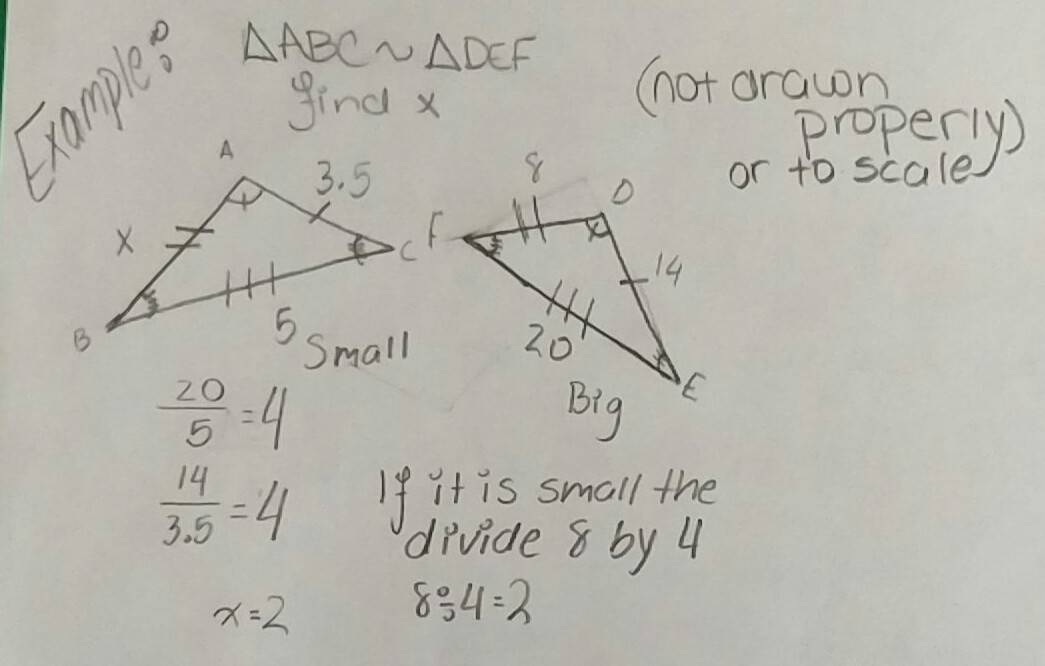 Example:
△ABC ~ △DEF
find x
(not drawn
properly)
or to scale
A
3.5
x
C
B
5
Small
8
D
F
14
20
E
Big
20/5 = 4
14/3.5 = 4
x = 2
If it is small the
divide 8 by 4
8÷4=2